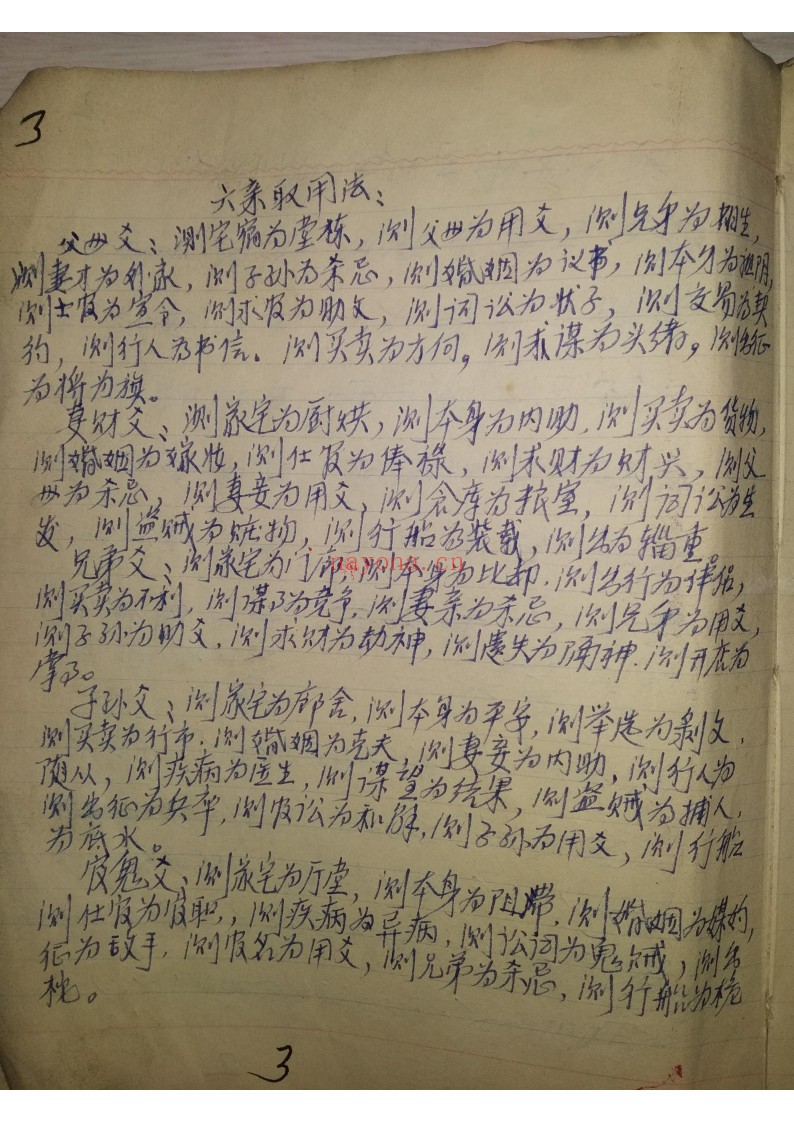 3
六亲取用法：
父母爻：测宅宿为堂栋，测父母为用爻，测兄弟为相生，
测妻才为利家，测子孙为杀忌，测婚姻为议书，测本身为祖阴，
测士官为宣令，测求官为助文，测词讼为状子，测交易为契
约，测行人为书信。测买卖为方向，测求谋为头绪，测出征
为将为旗。
妻财爻：测家宅为厨烘，测本身为内助，测买卖为货物，
测婚姻为嫁妆，测仕官为俸禄，测求财为财兴，测父
母为杀忌，测妻妾为用爻，测仓库为粮室，测词讼为生
发，测盗贼为赃物，测行船为装载，测出为辎重。
nayona.cn
兄弟爻：测家宅为门户，测本身为比劫，测出行为伴侣，
测买卖为不利，测谋为竞争，测妻亲为杀忌，测兄弟为用爻，
测子孙为助爻，测求财为劫神，测遗失为神．测开店为
掌
子孙爻：测家宅为廊舍，测本身为平安，测举选为剥文，
测买卖为行市．测婚姻为克夫，测妻妾为内助，测行人为
随从，测疾病为医生，测谋望为结果，测盗贼为捕人，
测出征为兵卒，测官讼为和解，测子孙为用爻，测行船
为底水。
官鬼爻：测家宅为厅堂，测本身为阻滞．测婚姻为媒妁，
测仕官为官职，测疾病为异病，测讼词为鬼贼，测出
征为敌手，测官名为用爻，测兄弟为杀忌，测行船为桅
桅。
3